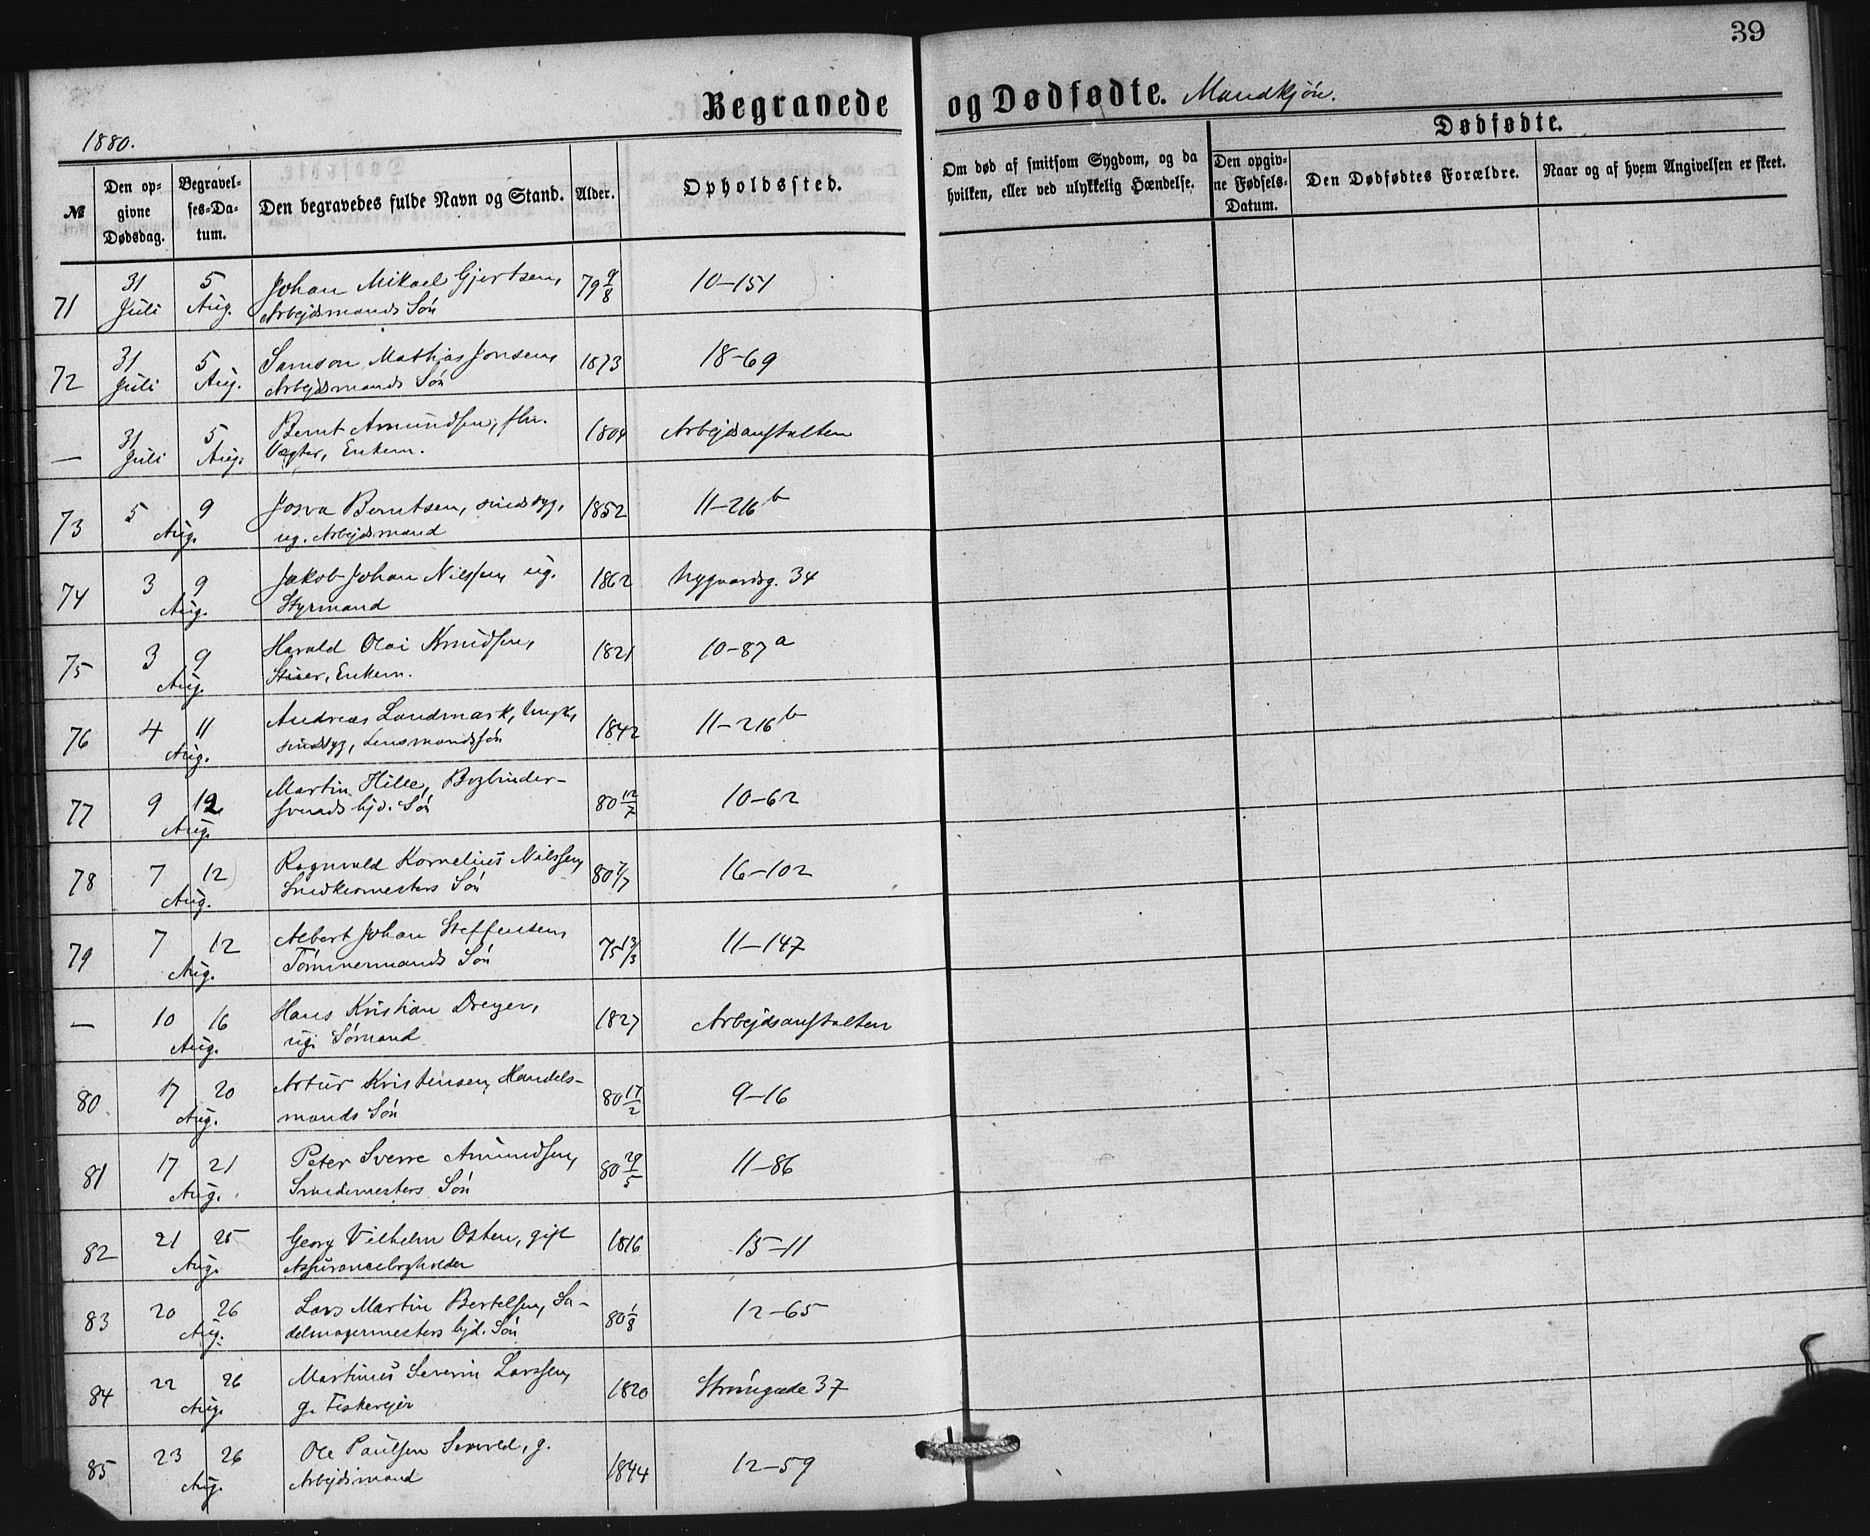 39
Begravede og Dødfødte. Mandkjøn.
1880.
Dødfødte.
№
Den opgivne Dødsdag.
Begravelses-Datum.
Den begravedes fulde Navn og Stand.
Alder.
Opholdssted.
Om død af smitsom Sygdom, og da hvilken, eller ved ulykkelig Hændelse.
Den opgivne Fødsels-Datum.
Den Dødfødtes Forældre.
Naar og af hvem Angivelsen er skeet.
71 31 Juli 5 Aug. Johan Mikael Gjertsen, 79 9/8 10-151
Arbejdsmands Søn
72 31 Juli 5 Aug. Samson Mathias Jonsen, 1873 18-69
Arbejdsmands Søn
— 31 Juli 5 Aug. Bernt Amundsen, fhv. 1804 Arbejdsanstalten
Vægter, Enkem.
73 5 9 Aug. Josva Berntsen, sindssyg, 1852 11-216 b
ug. Arbejdsmand
74 3 9 Aug. Jakob Johan Nilssen, ug. 1862 Nygaardsg. 34
Styrmand
75 3 9 Aug. Harald Olai Knudsen, 1821 10-87 a
Enkem.
76 4 11 Aug. Andreas Landmark, 1842 11-216 b
sindssyg, Lensmandssøn
77 9 12 Aug. Martin Hille, Bogbinder- 80 12/7 10-62
svends Søn
78 7 12 Aug. Ragnvald Kornelius Nilssen, 80 7/7 16-102
Snedkermesters Søn
79 7 12 Aug. Albert Johan Steffensen, 75 13/3 11-147
Tømmermands Søn
— 10 16 Aug. Hans Kristian Dreyer, 1827 Arbejdsanstalten
ug. Sømand
80 17 20 Aug. Artur Kristensen, Handels- 80 17/2 9-16
mands Søn
81 17 21 Aug. Peter Sverre Amundsen, 80 29/5 11-86
Smedemesters Søn
82 21 25 Aug. Georg Vilhelm Osten, gift 1816 15-11
Assurancebogholder
83 20 26 Aug. Lars Martin Bertelsen, Sa- 80 1/8 12-65
delmagermesters Søn
84 22 26 Aug. Martinus Severin Larssen, 1820 Strangade 37
g. Fiskerejer
85 23 26 Aug. Ole Paulsen g. 1844 12-59
Arbejdsmand